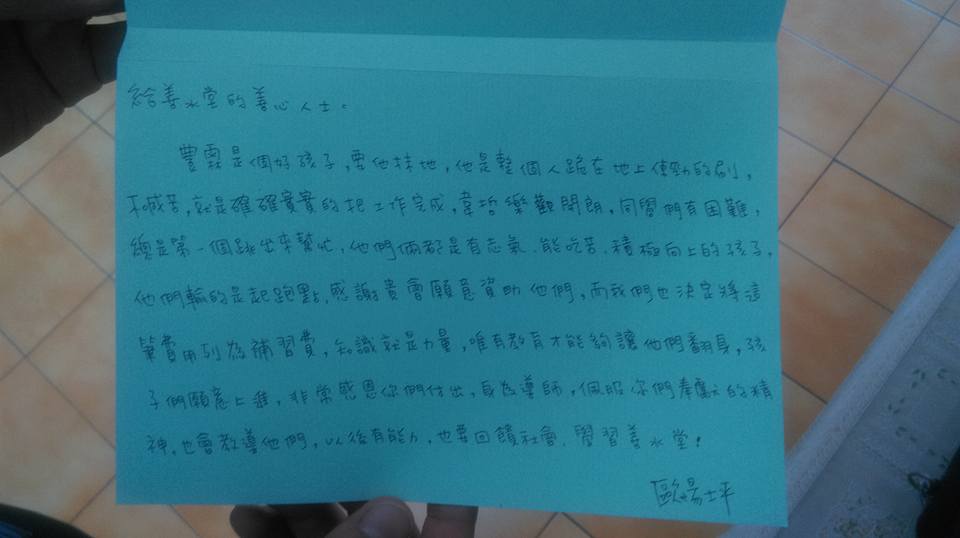 給善水堂的善心人士。
豐霖是個好孩子,要他抹地,他是整個人跪在地上使勁的刷,
不喊苦,就是確確實實的把工作完成,韋哲樂觀開朗,同學們有困難,
總是第一個跳出來幫忙,他們倆都是有志氣、能吃苦、積極向上的孩子,
他們輸的是起跑點,感謝貴會願意資助他們,而我們也決定將這
筆費用列為補習費,知識就是力量,唯有教育才能夠讓他們翻身,孩
子們願意上進,非常感恩你們付出,身為導師,佩服你們奉獻的精
神,也會教導他們,以後有能力,也要回饋社會、學習善水堂!
歐陽士坪